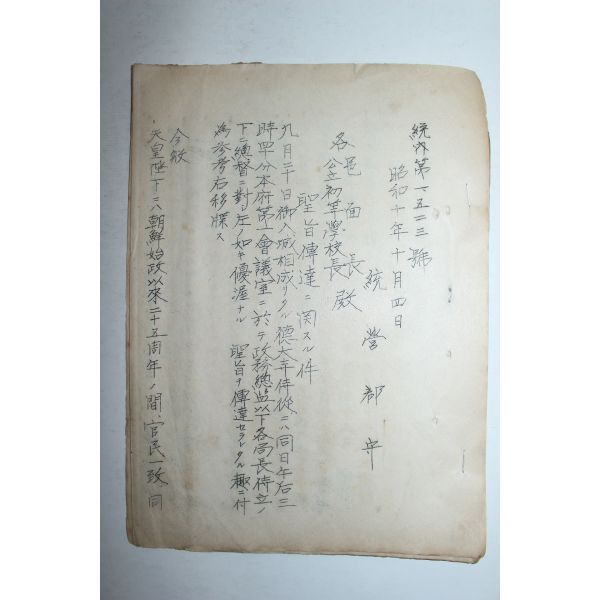 統外第一五二三號
昭和十年十月四日
統營郡守
各邑面長
公立初等學校長殿
聖旨傳達ニ関スル件
九月三十日御入城相成リタル德大寺侍從ニハ同日午后三
時四分本府第一會議室ニ於テ政務總監以下各局長侍立ノ
下ニ總督ニ對シ左ノ如キ優渥ナル 聖旨ヲ傳達セラレタル趣ニ付
為参考右移牒ス
今般
天皇陛下ニハ朝鮮始政以來二十五周年ノ間、官民一致、同